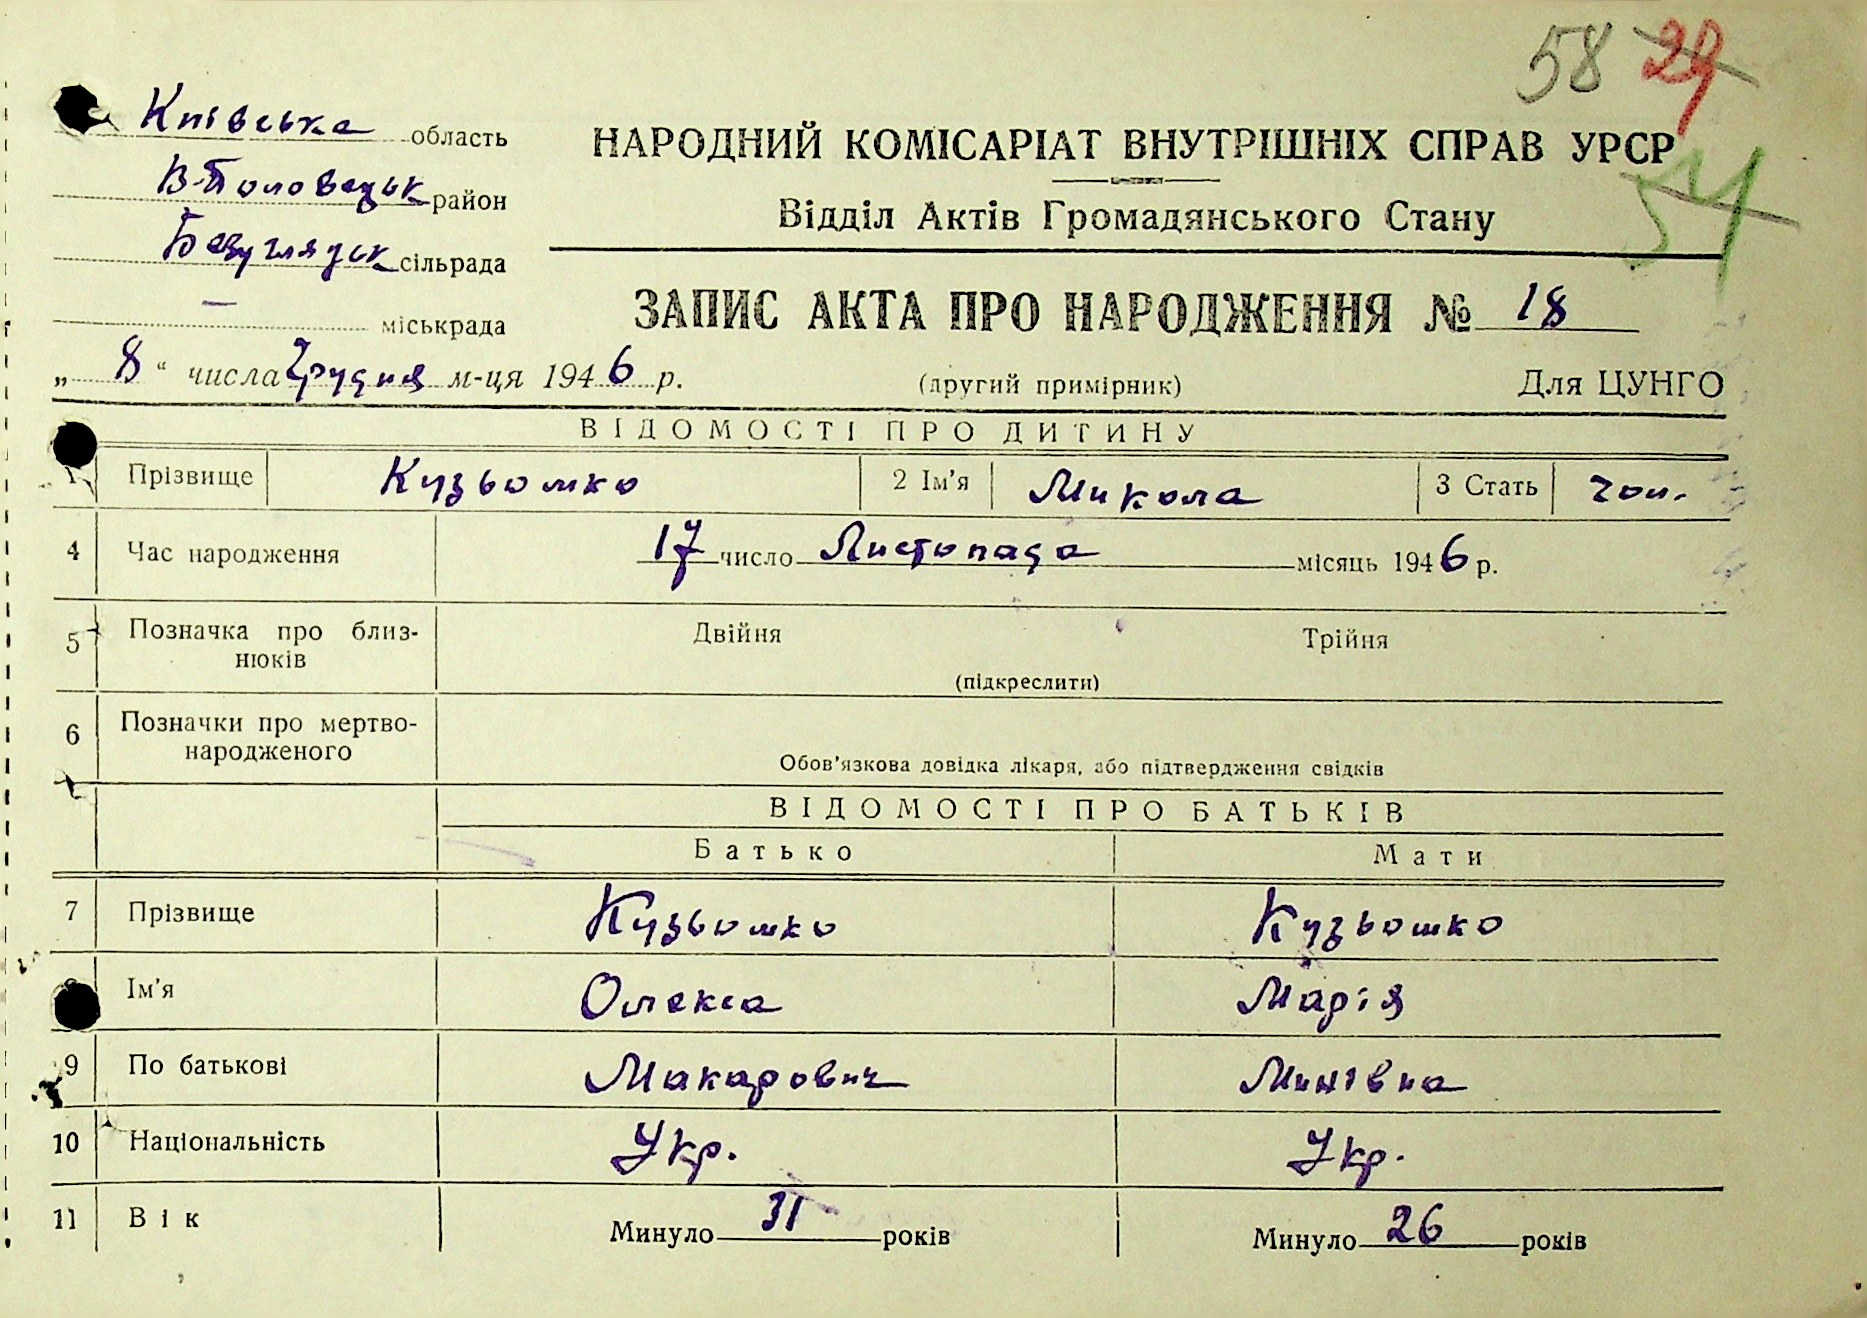 58 29
54
Київська область
В-Половецьк район
Безуглядськ сільрада
— міськрада
НАРОДНИЙ КОМІСАРІАТ ВНУТРІШНІХ СПРАВ УРСР
Відділ Актів Громадянського Стану
ЗАПИС АКТА ПРО НАРОДЖЕННЯ № 18
„ 8 “ числа Грудня м-ця 1946 р. (другий примірник) Для ЦУНГО
ВІДОМОСТІ ПРО ДИТИНУ
1 Прізвище Кузьомко 2 Ім'я Микола 3 Стать чол.
4 Час народження 17 число Листопада місяць 1946 р.
5 Позначка про близ- Двійня Трійня
нюків
(підкреслити)
6 Позначки про мертво-
народженого
Обов'язкова довідка лікаря, або підтвердження свідків
ВІДОМОСТІ ПРО БАТЬКІВ
Батько Мати
7 Прізвище Кузьомко Кузьомко
8 Ім'я Олекса Марія
9 По батькові Макарович Минівна
10 Національність Укр. Укр.
11 Вік Минуло 31 років Минуло 26 років